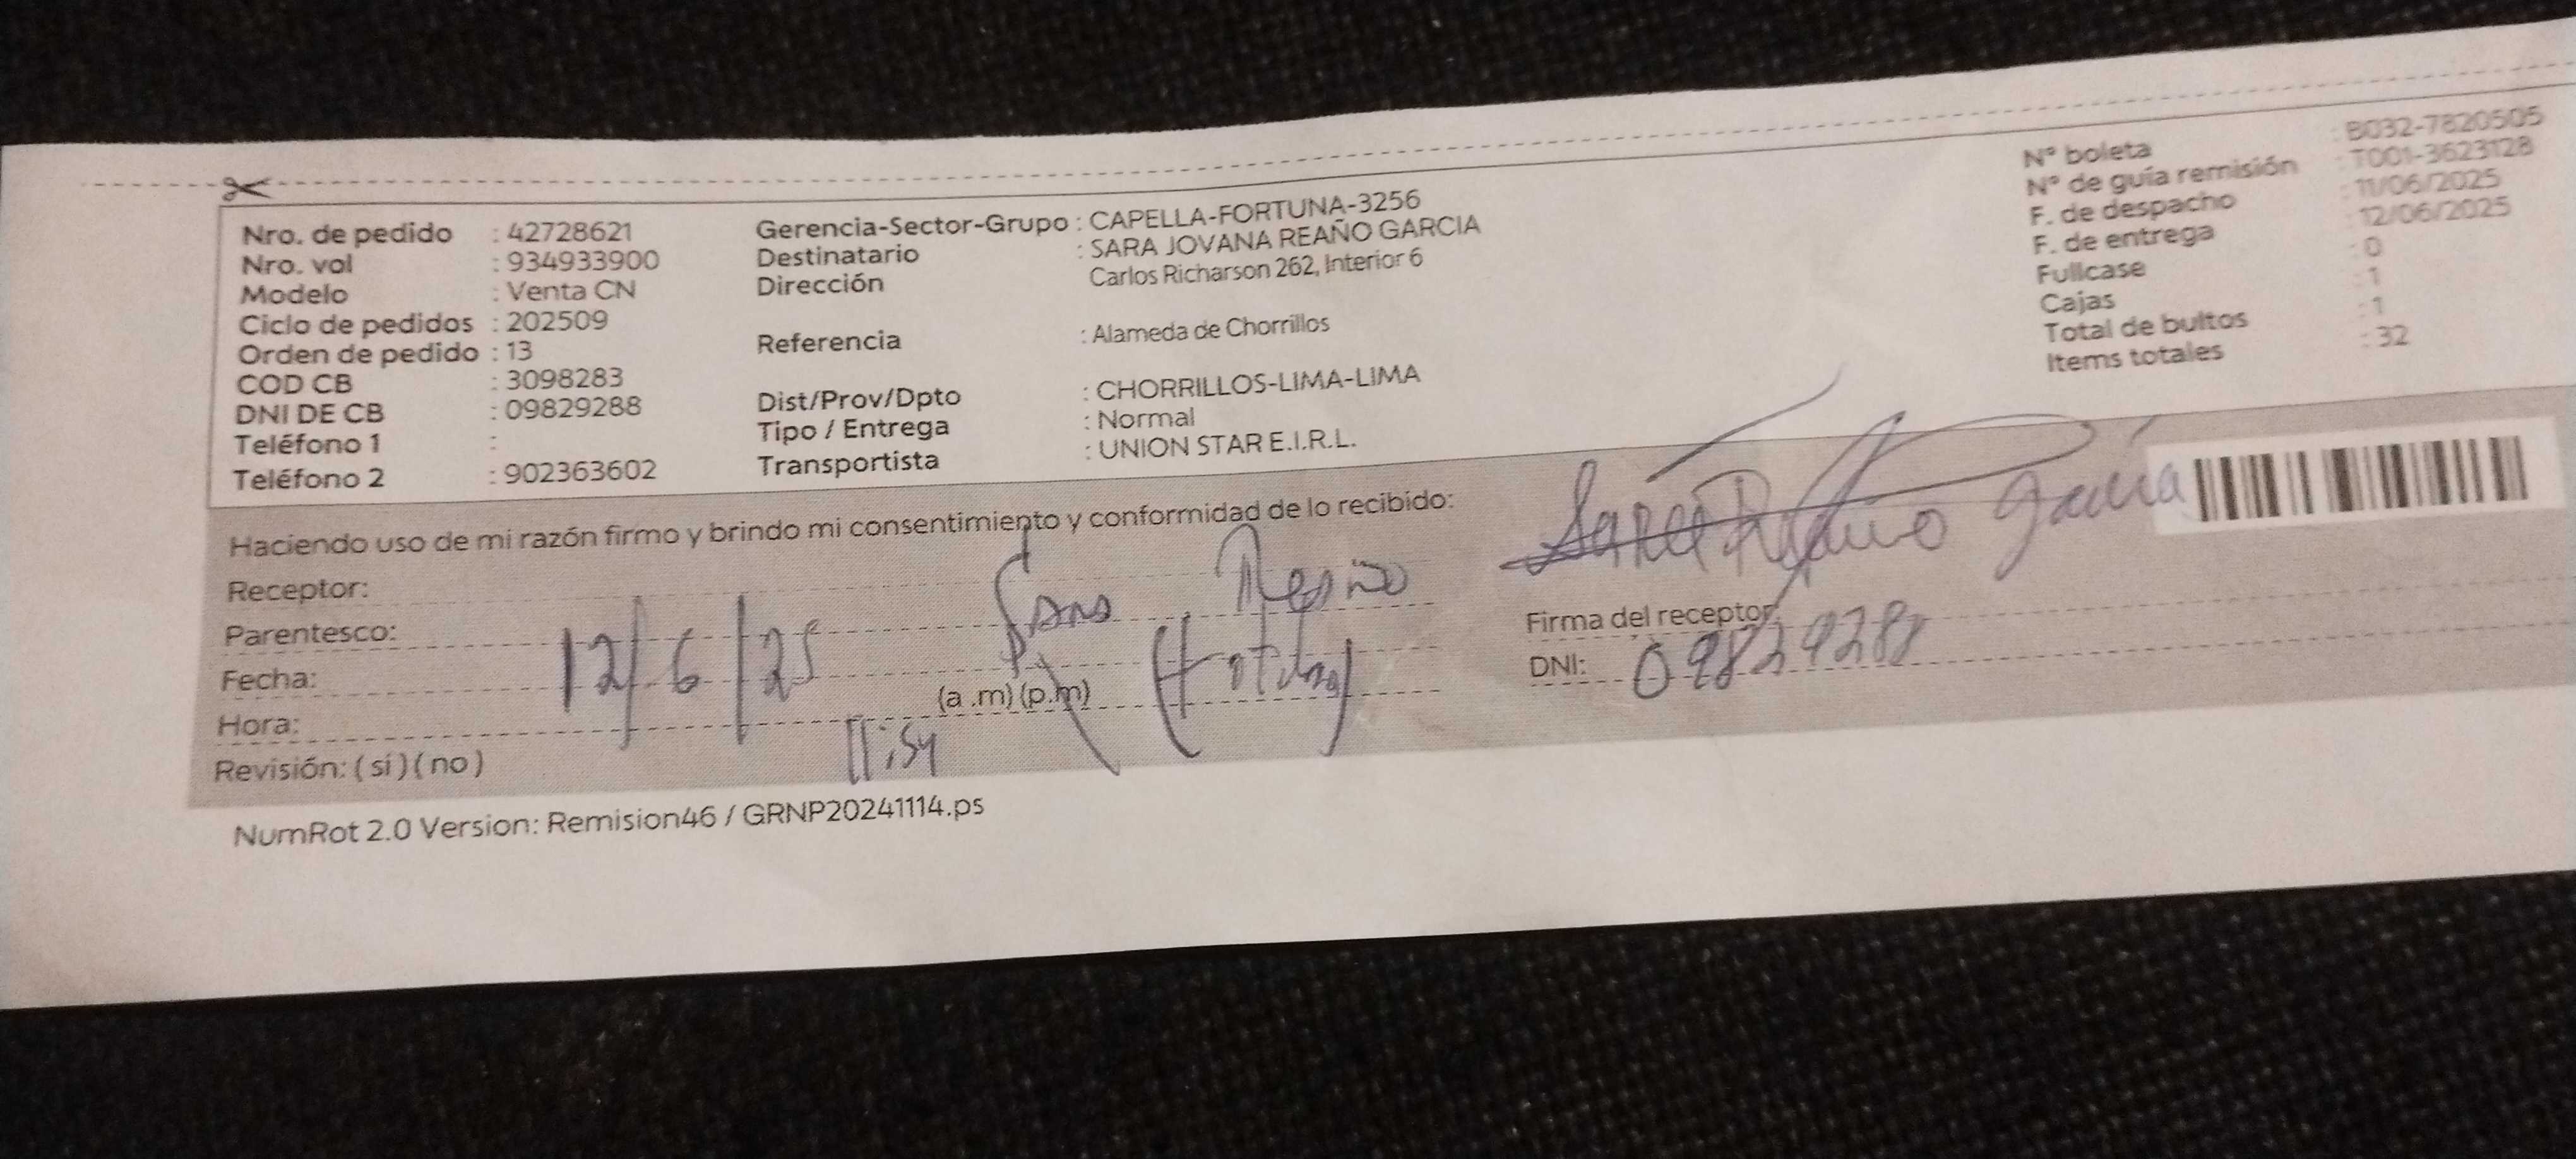 Nro. de pedido : 42728621
Nro. vol : 934933900
Modelo : Venta CN
Ciclo de pedidos : 202509
Orden de pedido : 13
COD CB : 3098283
DNI DE CB : 09829288
Teléfono 1 :
Teléfono 2 : 902363602
Gerencia-Sector-Grupo : CAPELLA-FORTUNA-3256
Destinatario : SARA JOVANA REAÑO GARCIA
Dirección Carlos Richarson 262, Interior 6
Referencia : Alameda de Chorrillos
Dist/Prov/Dpto : CHORRILLOS-LIMA-LIMA
Tipo / Entrega : Normal
Transportista : UNION STAR E.I.R.L.
N° boleta : B032-7820505
N° de guía remisión : T001-3623128
F. de despacho : 11/06/2025
F. de entrega : 12/06/2025
Fullcase : 0
Cajas : 1
Total de bultos : 1
Items totales : 32
Haciendo uso de mi razón firmo y brindo mi consentimiento y conformidad de lo recibido:
Receptor: Sara Reaño
Parentesco:
Fecha: 12/6/25
Hora: (a .m) (p.m)
Revisión: ( si ) ( no )
Sara Reaño Garcia
Firma del receptor
DNI: 09829288
NumRot 2.0 Version: Remision46 / GRNP20241114.ps